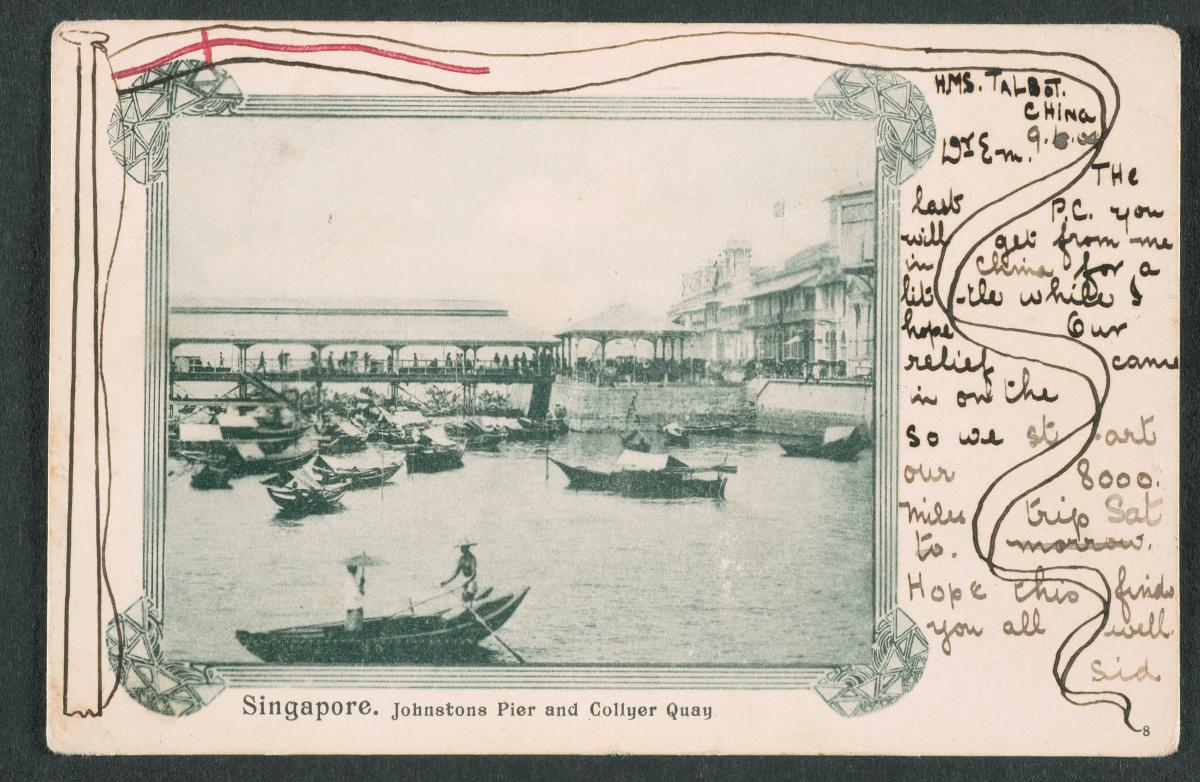 HMS. TALBOT.
CHINA
9.6.04
Dr Em.
THe
last P.C. you
will get from me
in china for a
lit-tle while I
hope Our
relief came
in on the
so we st-art
our 8000.
miles trip Sat
to. morrow.
Hope this finds
you all well
Sid
Singapore. Johnstons Pier and Collyer Quay
8